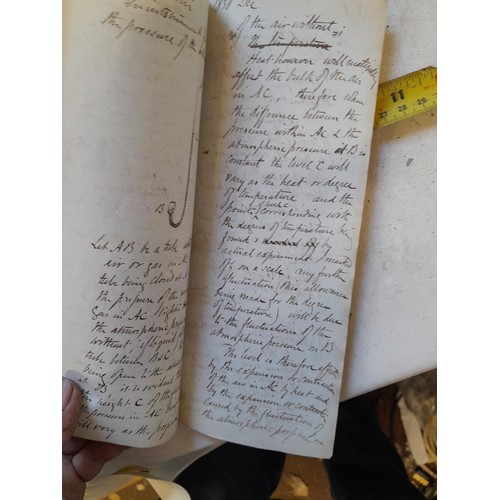 the pressure of the
B
Let AB be a tube
air or gas in
tube being closed at
the pressure of the
gas in AC
the atmospheric
without
tube between B & C
being open to the
at B it is evident
height C of the
the pressure in AC
will vary as the
of the air without
the temperature
Heat however will
affect the bulk of the air
in AC, therefore when
the difference between the
pressure within AC & the
atmospheric pressure at B is
constant the level C will
vary as the heat or degree
of temperature and the
points corresponding with
the degrees of temperature being
found by
actual experiment & mark
off on a scale any further
fluctuation (this allowance
being made for the degree
of temperature) will be due
to the fluctuations of the
atmospheric pressure on B
The level is therefore
by the expansion or contraction
of the air in AC by heat and
by the expansion or
caused by the fluctuation of
the atmospheric pressure on
11
27
28
29